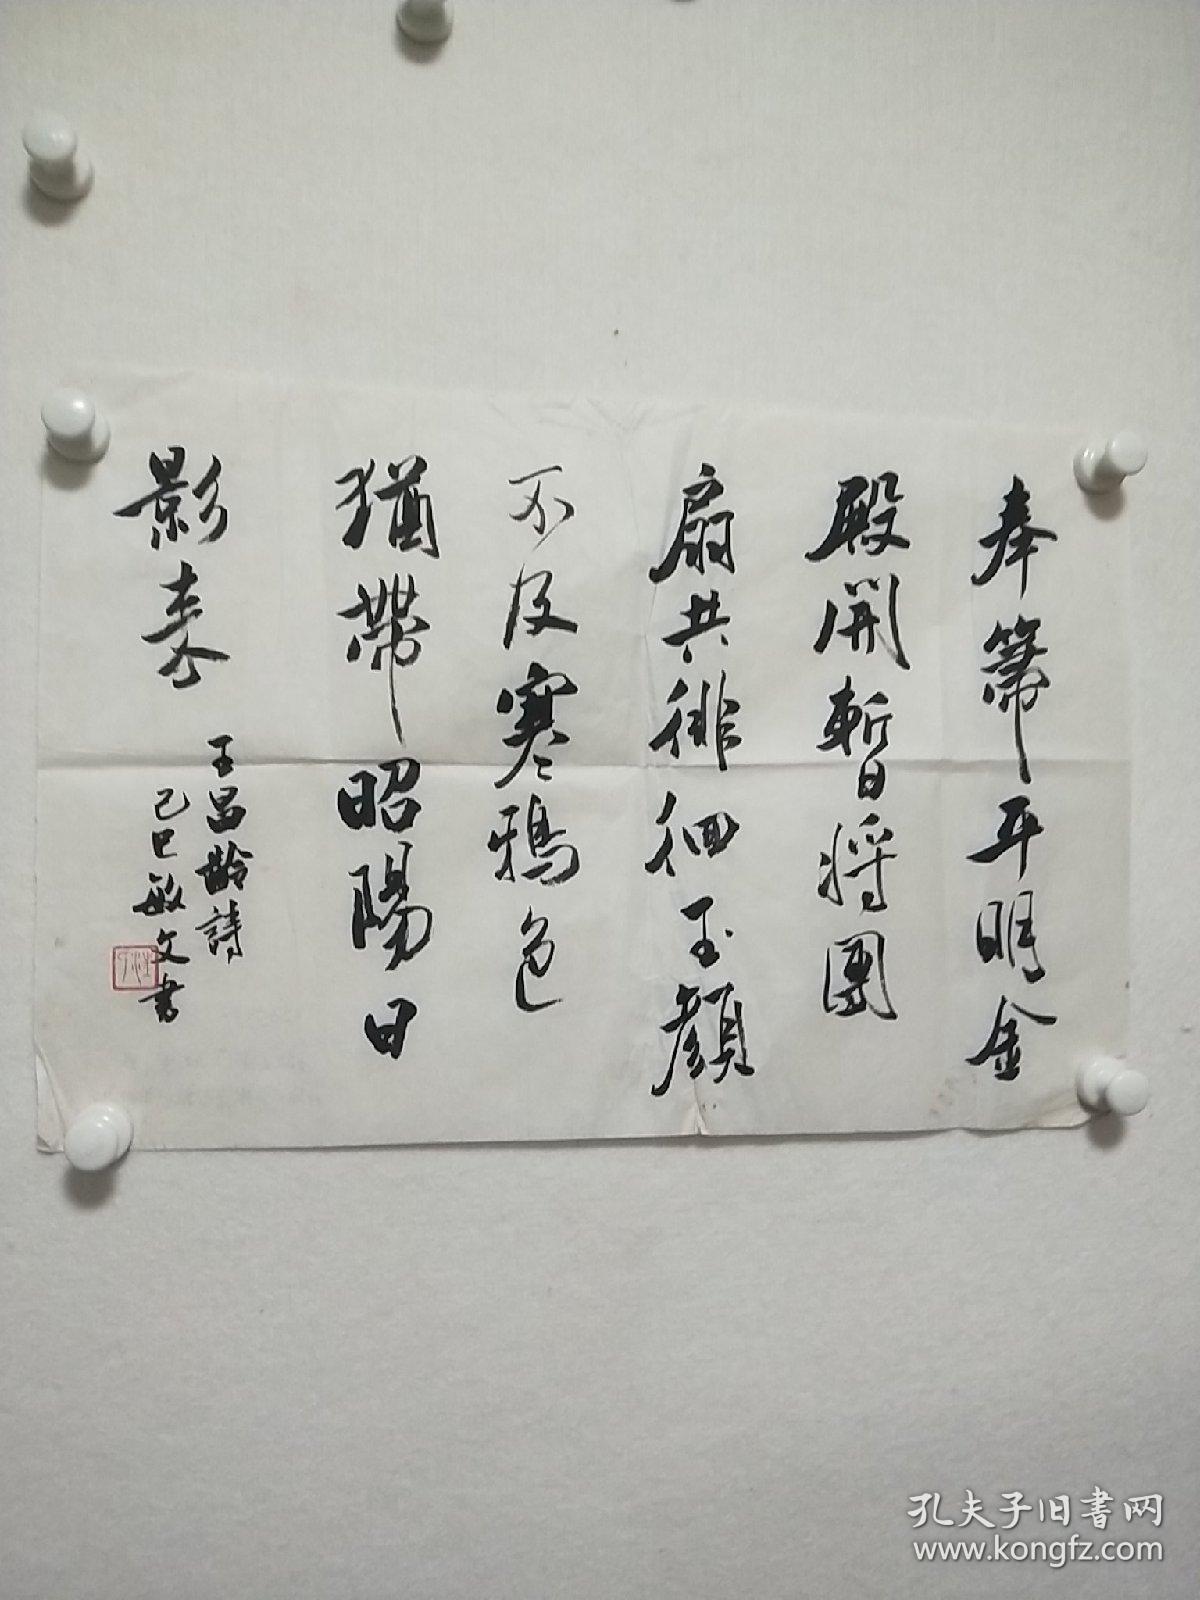 奉箒平明金
殿開暫將團
扇共徘徊玉顏
不及寒鴉色
猶帶昭陽日
影來
王昌齡詩
己巳敏文書
孔夫子旧书网
www.kongfz.com